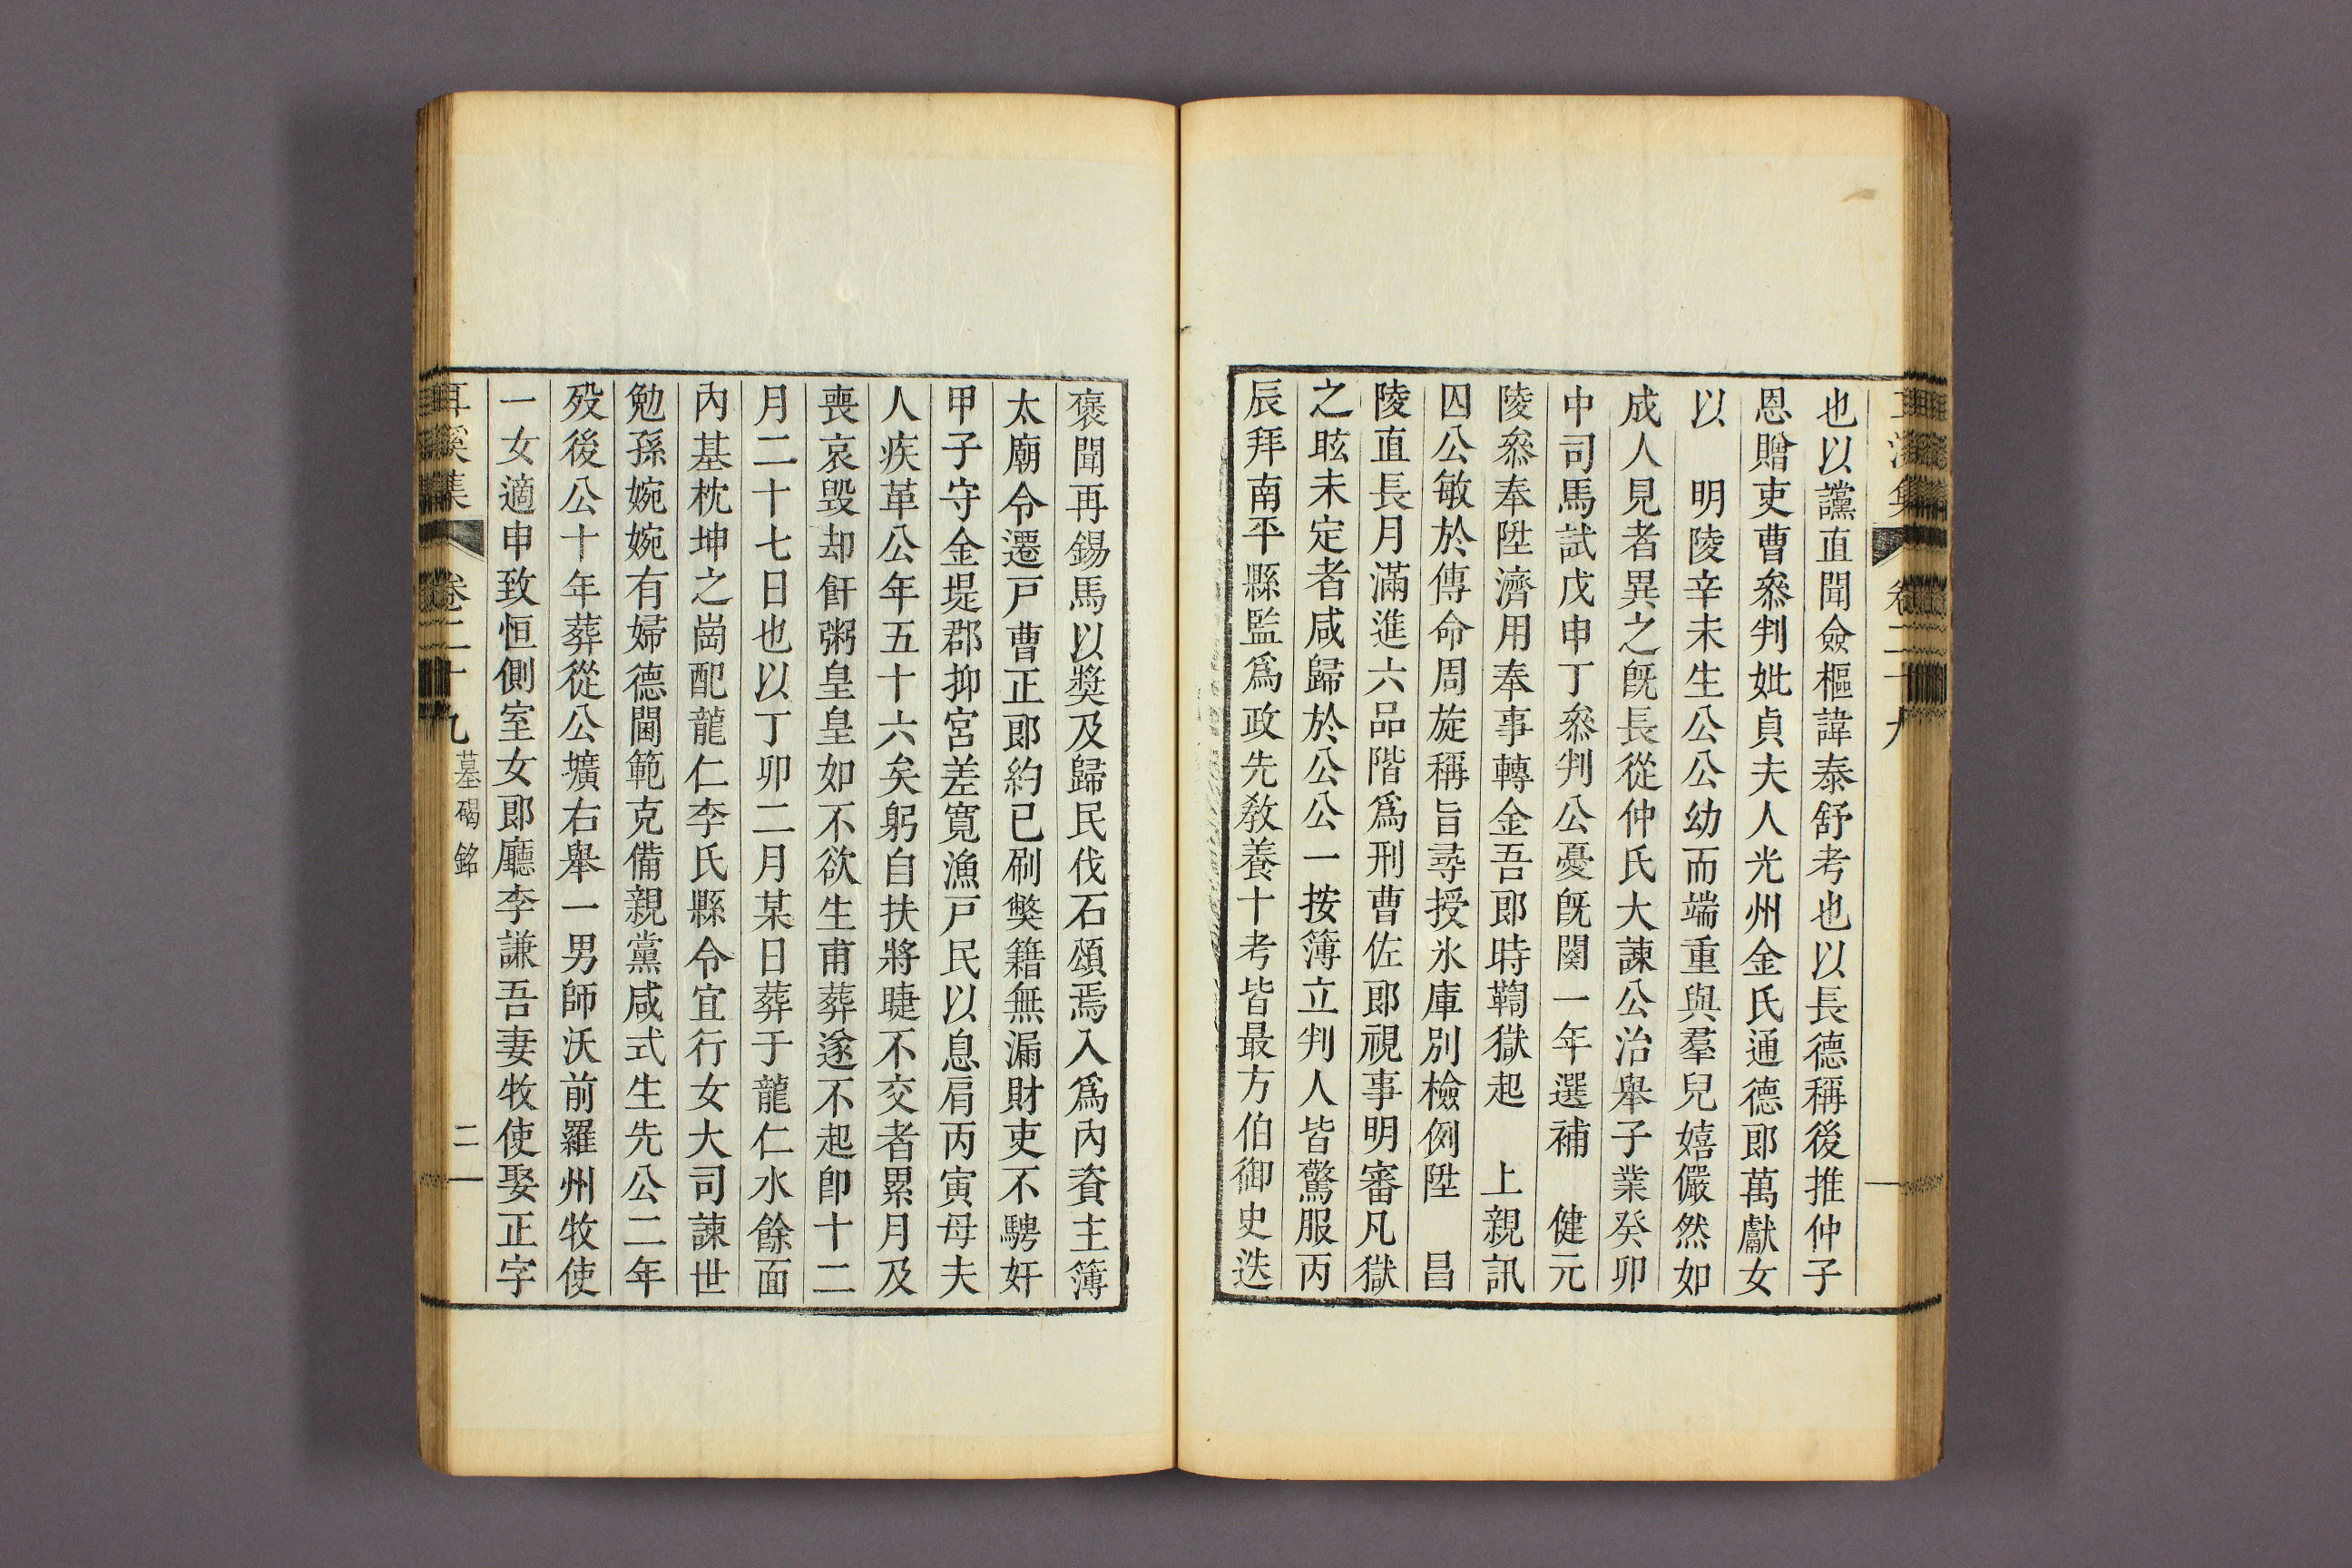 也以讜直聞僉樞諱泰舒考也以長德稱後推仲子
恩贈吏曹叅判妣貞夫人光州金氏通德郎萬獻女
以　明陵辛未生公公幼而端重與羣兒嬉儼然如
成人見者異之旣長從仲氏大諫公治舉子業癸卯
中司馬試戊申丁叅判公憂旣闋一年選補　健元
陵叅奉陞濟用奉事轉金吾郎時鞫獄起　上親訊
囚公敏於傳命周旋稱旨尋授氷庫別檢例陞　昌
陵直長月滿進六品階爲刑曹佐郎視事明審凡獄
之眩未定者咸歸於公公一按簿立判人皆驚服丙
辰拜南平縣監爲政先教養十考皆最方伯御史迭
褒聞再錫馬以獎及歸民伐石頌焉入爲內資主簿
太廟令遷戶曹正郎約已刷弊籍無漏財吏不騁奸
甲子守金堤郡抑宮差寬漁戶民以息肩丙寅母夫
人疾革公年五十六矣躬自扶將睫不交者累月及
喪哀毁却飦粥皇皇如不欲生甫葬遂不起卽十二
月二十七日也以丁卯二月某日葬于龍仁水餘面
內基枕坤之崗配龍仁李氏縣令宜行女大司諫世
勉孫婉婉有婦德閫範克備親黨咸式生先公二年
歿後公十年葬從公壙右舉一男師沃前羅州牧使
一女適申致恒側室女郎廳李謙吾妻牧使娶正字
耳溪集　卷二十九　墓碣銘　二